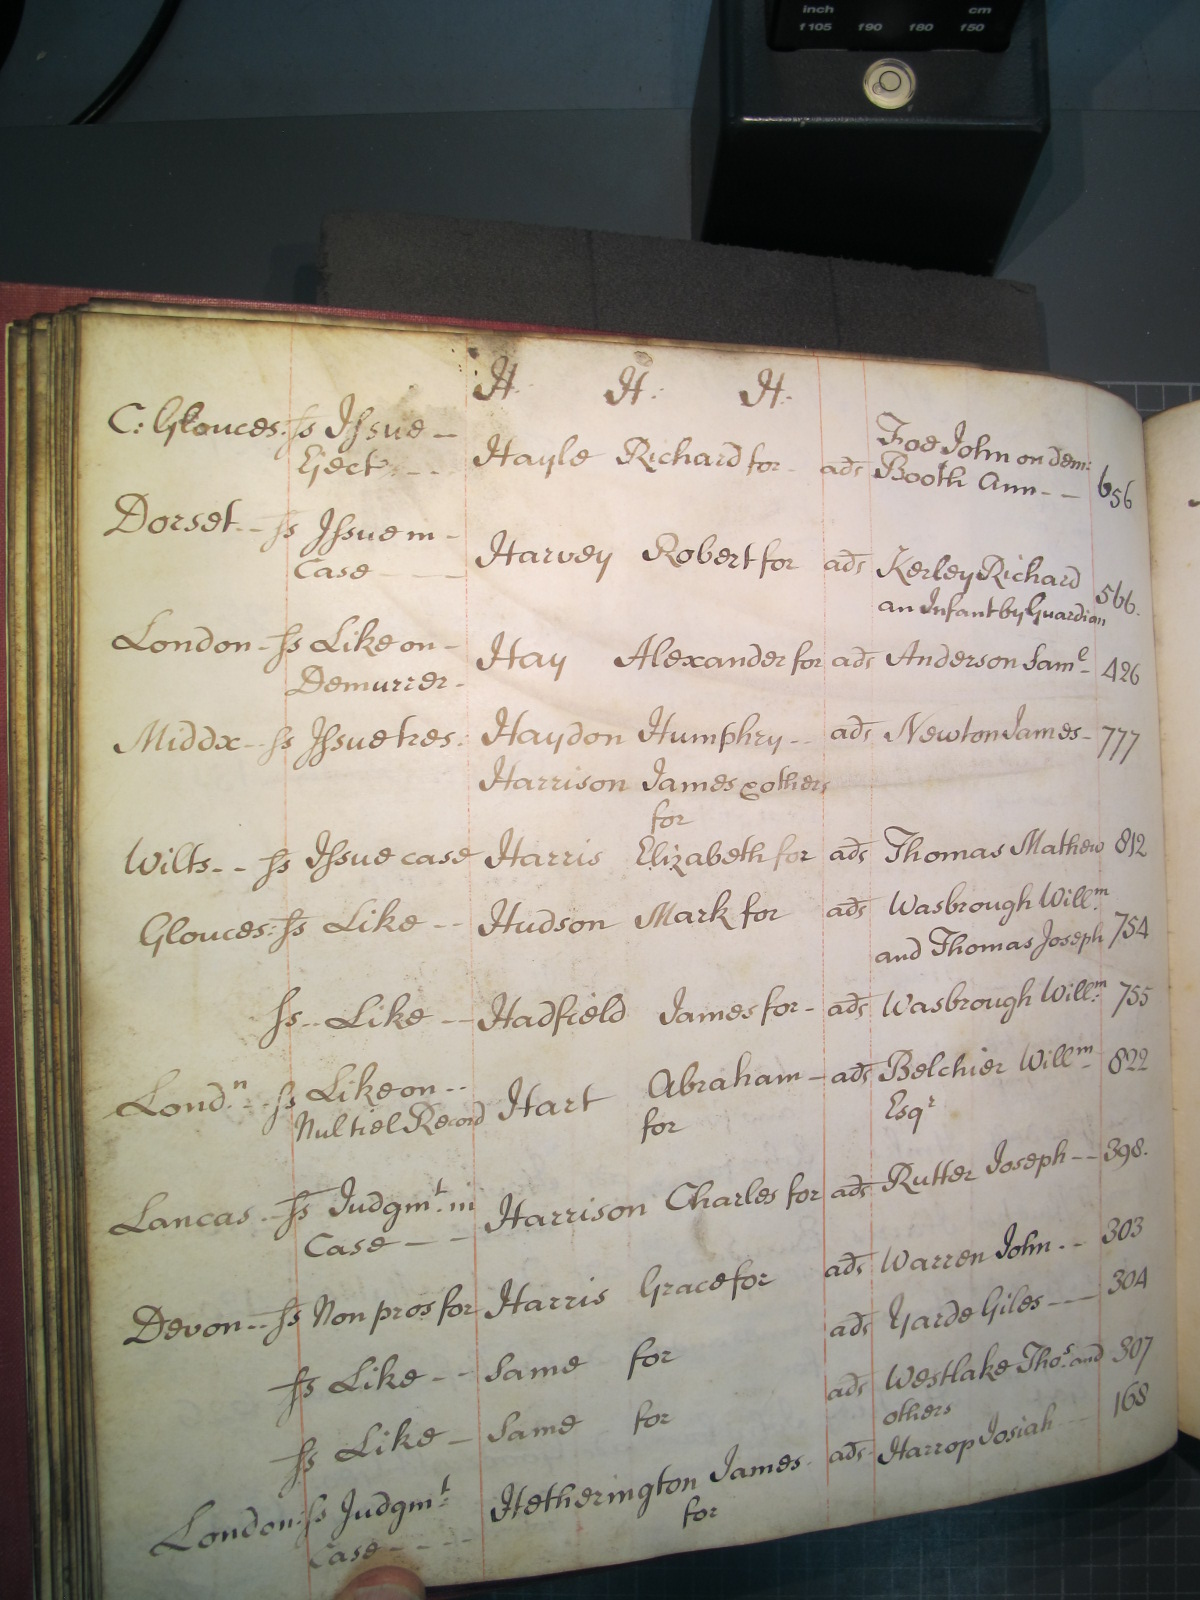 inch cm
f105 f90 f80 f50
H. H. H.
C: Glouces: ss Issue — Hayle Richard for - ads Foe John on dem:
Eject: - - Booth Ann - - 656
Dorset - - ss Issue in - Harvey Robert for ads Kerley Richard 566.
Case - - - an Infant by Guardian
London - ss Like on - Hay Alexander for ads Anderson Saml - 426
Demurrer -
Middx - - ss Issue tres: Haydon Humphry - - ads Newton James - 777
Harrison James & others
for
Wilts - - ss Issue case Harris Elizabeth for ads Thomas Mathew 812
Glouces: ss Like - - Hudson Mark for ads Wasbrough Willm
and Thomas Joseph 754
ss - - Like - - Hadfield James for - ads Wasbrough Willm: 755
Londn - - ss Like on - - Hart Abraham - ads Belchier Willm - 822
Nul tiel Record for Esqr
Lancas - ss Judgmt: in Harrison Charles for ads Rutter Joseph - - 398.
Case - - -
Devon - - ss Non pros for Harris Grace for ads Warren John - - 303
ss Like - - Same for ads Yarde Giles - - - 304
ss Like - Same for ads Westlake Thos: and 307
others
London: ss Judgmt: Hetherington James - ads - Harrop Josiah - - 168
Case - - - - for